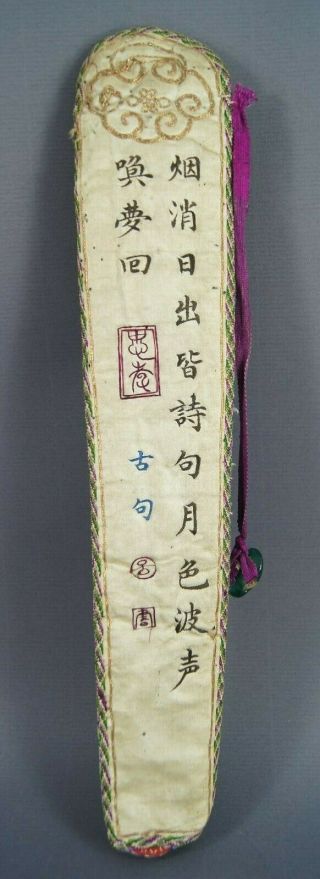 烟消日出皆詩句月色波声
喚夢回
忠孝
古句